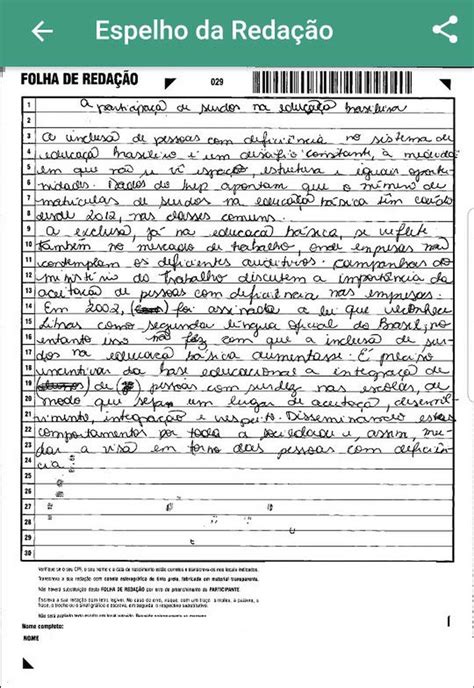 Espelho da Redação
FOLHA DE REDAÇÃO
029
1 A participaça de surdos na educaça brasileira
2
3 A inclusa de pessoas com deficiência no sistema de
4 educaça brasileiro é um desafio constante, à medida
5 em que não se vê espaço, estrutura e iguais oportu-
6 nidades. Dados do Inep apontam que o número de
7 matrículas de surdos na educaça básica tem caído
8 desde 2012, nas classes comuns.
9 A exclusa, já na educaça básica, se reflete
10 também no mercado de trabalho, onde empresas não
11 contemplam os deficientes auditivos. Campanhas do
12 ministério do Trabalho discutem a importância da
13 aceitaça de pessoas com deficiência nas empresas.
14 Em 2002, foi assinada a lei que reconheceu
15 Libras como segunda língua oficial do Brasil; no
16 entanto isso não fez com que a inclusa de sur-
17 dos na educaça básica aumentasse. É preciso
18 incentivar da base educacional a integraça de
19 de pessoas com surdez nas escolas, de
20 modo que sejam um lugar de aceitaça, desenvol-
21 vimento, integração e respeito. Disseminando estes
22 comportamentos por toda a sociedade e, assim, mu-
23 dar a visa em torno das pessoas com deficiên-
24 cia.
25
26
27
28
29
30
Verifique se o seu CPF, o seu nome e a data de nascimento estão corretos
Transcreva a sua redação com caneta esferográfica de tinta preta, fabricada em material transparente.
Não haverá substituição desta FOLHA DE REDAÇÃO por erro de preenchimento do PARTICIPANTE.
Escreva a sua redação com letra legível. No caso de erro, risque, com um traço
Nome completo:
NOME